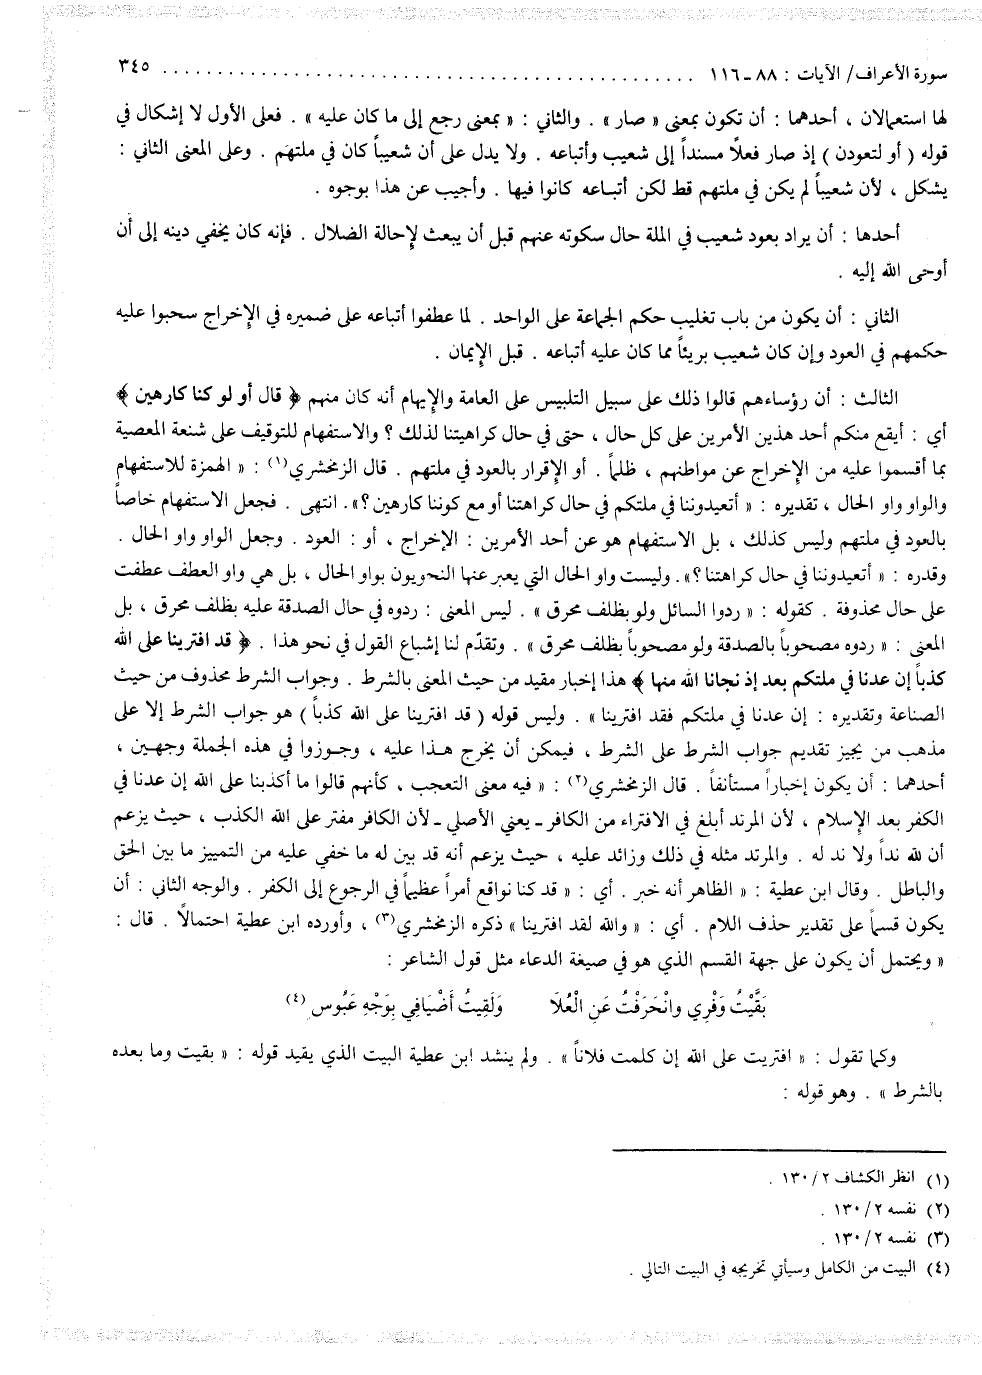 سورة الأعراف/ الآيات : ٨٨ ـ ١١٦ ........................................................ ٣٤٥
لها استعمالان ، أحدهما : أن تكون بمعنى « صار » . والثاني : « بمعنى رجع إلى ما كان عليه » . فعلى الأول لا إشكال في
قوله ( أو لتعودن ) إذ صار فعلاً مسنداً إلى شعيب وأتباعه . ولا يدل على أن شعيباً كان في ملتهم . وعلى المعنى الثاني :
يشكل ، لأن شعيباً لم يكن في ملتهم قط لكن أتبـاعه كانوا فيها . وأجيب عن هذا بوجوه .
أحدها : أن يراد بعود شعيب في الملة حال سكوته عنهم قبل أن يبعث لإحالة الضلال . فإنه كان يخفي دينه إلى أن
أوحى الله إليه .
الثاني : أن يكون من باب تغليب حكم الجماعة على الواحد . لما عطفوا أتباعه على ضميره في الإخراج سحبوا عليه
حكمهم في العود وإن كان شعيب بريئاً مما كان عليه أتباعه . قبل الإيمان .
الثالث : أن رؤساءهم قالوا ذلك على سبيل التلبيس على العامة والإيهام أنه كان منهم ﴿ قال أو لو كنا كارهين ﴾
أي : أيقع منكم أحد هذين الأمرين على كل حال ، حتى في حال كراهيتنا لذلك ؟ والاستفهام للتوقيف على شنعة المعصية
بما أقسموا عليه من الإخراج عن مواطنهم ، ظلماً . أو الإقرار بالعود في ملتهم . قال الزمخشري(١) : « الهمزة للاستفهام
والواو واو الحال ، تقديره : « أتعيدوننا في ملتكم في حال كراهتنا أو مع كوننا كارهين ؟» . انتهى . فجعل الاستفهام خاصاً
بالعود في ملتهم وليس كذلك ، بل الاستفهام هو عن أحد الأمرين : الإخراج ، أو : العود . وجعل الواو واو الحال .
وقدره : « أتعيدوننا في حال كراهتنا ؟» . وليست واو الحال التي يعبر عنها النحويون بواو الحال ، بل هي واو العطف عطفت
على حال محذوفة . كقوله : « ردوا السائل ولو بظلف محرق » . ليس المعنى : ردوه في حال الصدقة عليه بظلف محرق ، بل
المعنى : « ردوه مصحوباً بالصدقة ولو مصحوباً بظلف محرق » . وتقدّم لنا إشباع القول في نحو هذا . ﴿ قد افترينا على الله
كذباً إن عدنا في ملتكم بعد إذ نجانا الله منها ﴾ هذا إخبار مقيد من حيث المعنى بالشرط . وجواب الشرط محذوف من حيث
الصناعة وتقديره : إن عدنا في ملتكم فقد افترينا » . وليس قوله ( قد افترينا على الله كذباً ) هو جواب الشرط إلا على
مذهب من يجيز تقديم جواب الشرط على الشرط ، فيمكن أن يخرج هـذا عليه ، وجـوزوا في هذه الجملة وجهـين ،
أحدهما : أن يكون إخباراً مستأنفاً . قال الزمخشري(٢) : « فيه معنى التعجب ، كأنهم قالوا ما أكذبنا على الله إن عدنا في
الكفر بعد الإسلام ، لأن المرتد أبلغ في الافتراء من الكافر ـ يعني الأصلي ـ لأن الكافر مفتر على الله الكذب ، حيث يزعم
أن لله نداً ولا ند له . والمرتد مثله في ذلك وزائد عليه ، حيث يزعم أنه قد بين له ما خفي عليه من التمييز ما بين الحق
والباطل . وقال ابن عطية : « الظاهر أنه خبر . أي : « قد كنا نواقع أمراً عظيماً في الرجوع إلى الكفر . والوجه الثاني : أن
يكون قسماً على تقدير حذف اللام . أي : « والله لقد افترينا » ذكره الزمخشري(٣) ، وأورده ابن عطية احتمالاً . قال :
« ويحتمل أن يكون على جهة القسم الذي هو في صيغة الدعاء مثل قول الشاعر :
بَقَّيْتُ وَفْرِي وانْحَرَفْتُ عَنِ الْعُلَا    وَلَقِيتُ أَضْيَافِي بِوَجْهِ عَبُوسِ (٤)
وكما تقول : « افتريت على الله إن كلمت فلاناً » . ولم ينشد ابن عطية البيت الذي يقيد قوله : « بقيت وما بعده
بالشرط » . وهو قوله :
(١) انظر الكشاف ٢/ ١٣٠ .
(٢) نفسه ٢/ ١٣٠ .
(٣) نفسه ٢/ ١٣٠ .
(٤) البيت من الكامل وسيأتي تخريجه في البيت التالي .